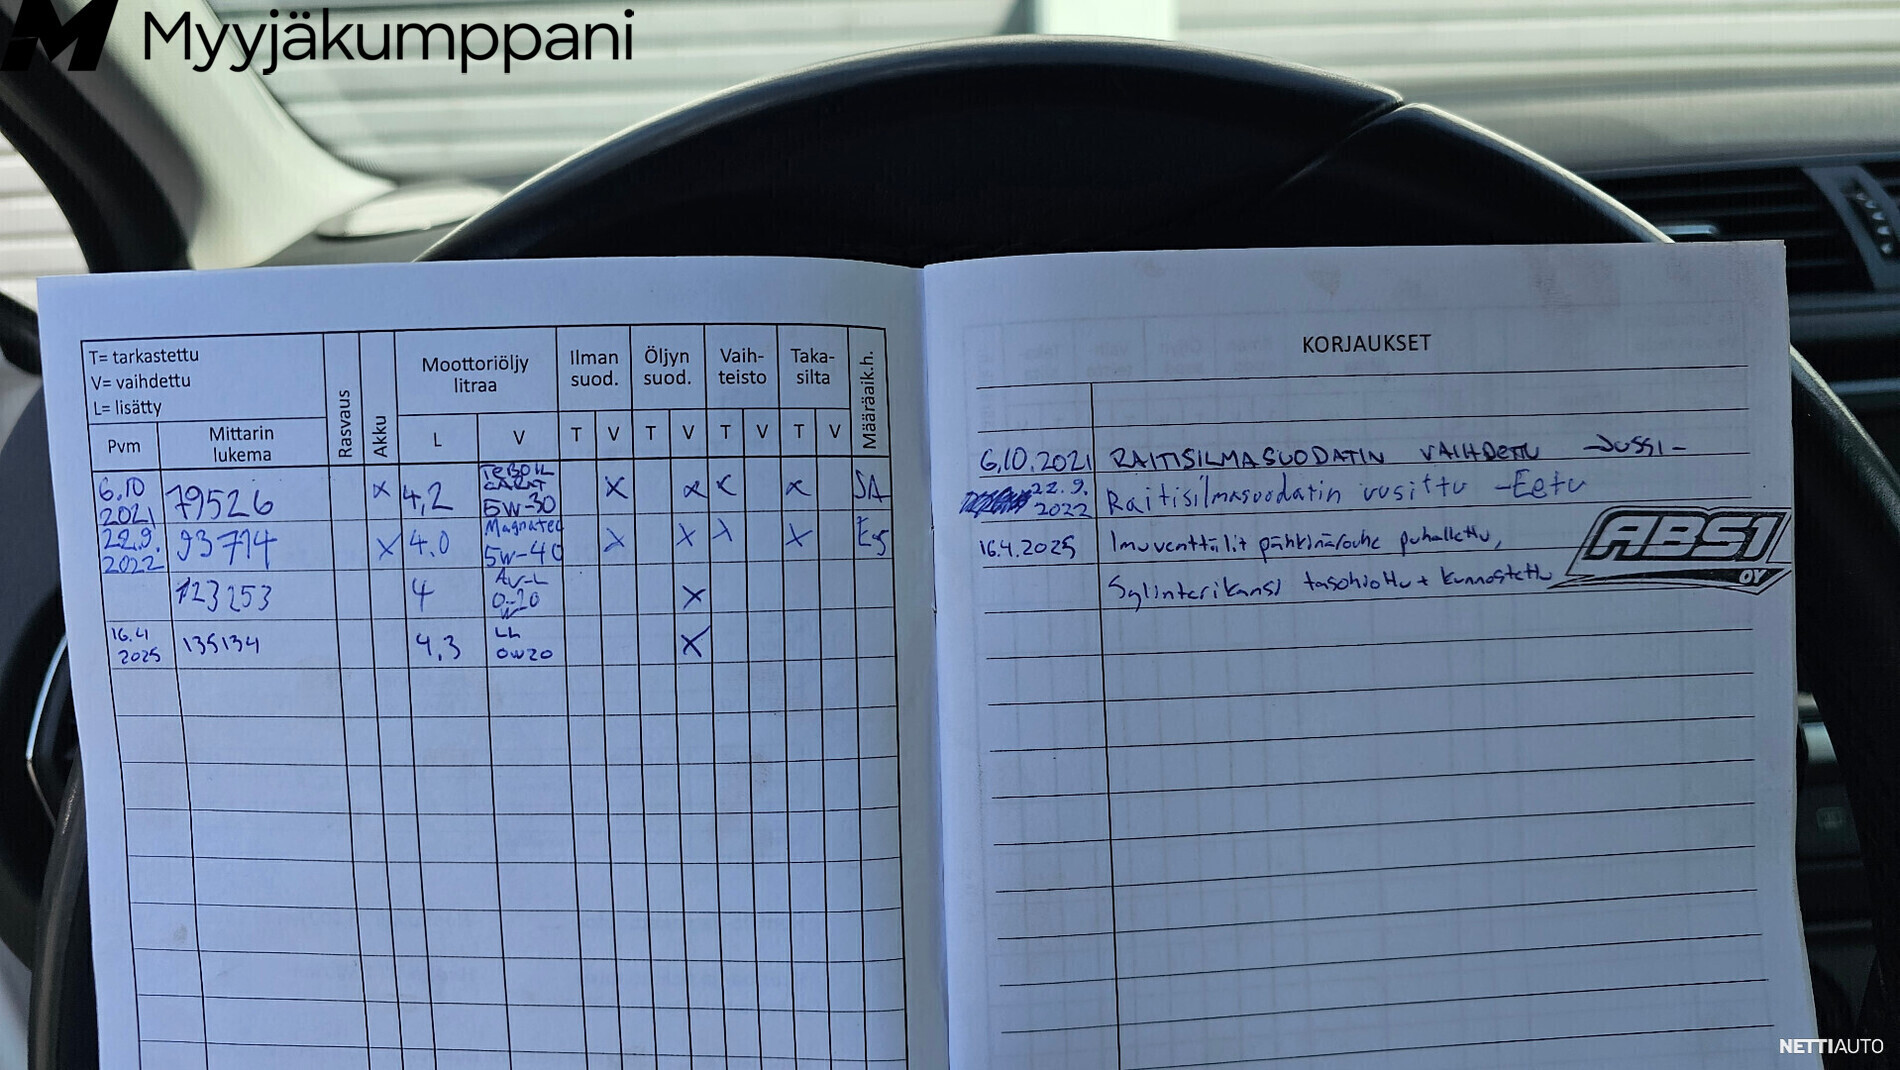 Myyjäkumppani
T= tarkastettu
V= vaihdettu
L= lisätty
Pvm
Mittarin
lukema
Rasvaus
Akku
Moottoriöljy
litraa
L V
Ilman
suod.
T V
Öljyn
suod.
T V
Vaih-
teisto
T V
Taka-
silta
T V
Määräaik.h.
6.10 2021 79526 X 4,2 TEBOIL 5W-30 X X X X SA
22.9. 2022 93714 X 4.0 Magnatec 5W-40 X X X X
123253 4 X
16.4 2025 135134 4,3 LL 0W20 X
KORJAUKSET
6.10.2021 RAITISILMASUODATIN VAIHDETTU -JUSSI-
22.9. 2022 Raitisilmasuodatin uusittu -Eetu
16.4.2025 Imuventtiilit pähkinärouhe puhallettu,
Sylinterikansi tasohiottu + kunnostettu
ABS1
OY
NETTIAUTO